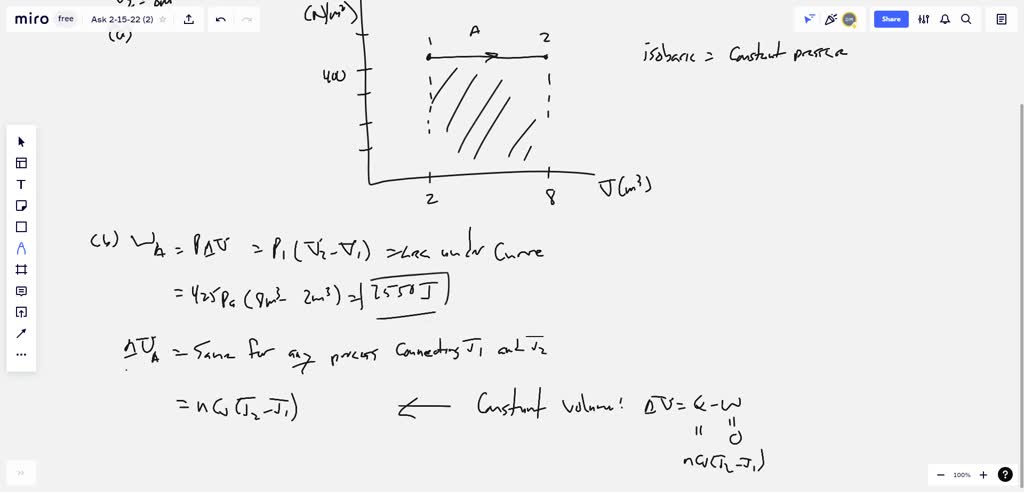 miro free Ask 2-15-22 (2) Share
(a)
(N/m²)
1 A 2
isobaric = Constant pressure
400
2 8 V(m³)
(b) W_A = PΔV = P₁(V₂-V₁) = Area under Curve
= 425Pa (8m³ - 2m³) = 2550J
ΔU_A = Same for any process Connecting T₁ and T₂
= nCv(T₂-T₁) ← Constant volume: ΔU = Q-W
" "
0
nCv(T₂-T₁)
- 100% + ?